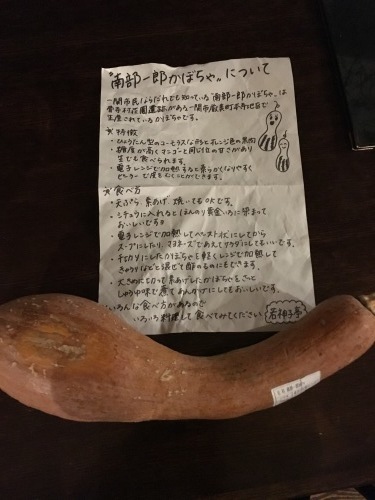 "南部一郎かぼちゃ"について
一関市民ならだれでも知っている"南部一郎かぼちゃ"は
骨寺村荘園遺跡がある一関市厳美町本寺地区で
生産されているかぼちゃです。
☆特徴
・ひょうたん型のユーモラスな形とオレンジ色の果肉
・糖度が高くマンゴーと同じ位の甘さがあり
生でも食べられます。
・電子レンジで加熱すると柔らかくなりやすく
ピーラーで皮をむくことができます。
☆食べ方
・天ぷら、素あげ、焼いてもOKです。
・シチューに入れるとほんのり黄金いろに染まって
おいしいです。
・電子レンジで加熱してペースト状にしてから
スープにしたり、マヨネーズであえてサラダにしてもいいです。
・千切りにしたかぼちゃを軽くレンジで加熱して
きゅうりなどと混ぜて酢のものにもできます。
・大きめに切って素あげしたかぼちゃをさっと
しょうゆ味で煮てあんかけにしてもおいしいです。
いろんな食べ方があるので
いろいろ料理して食べてみてください
若神子亭